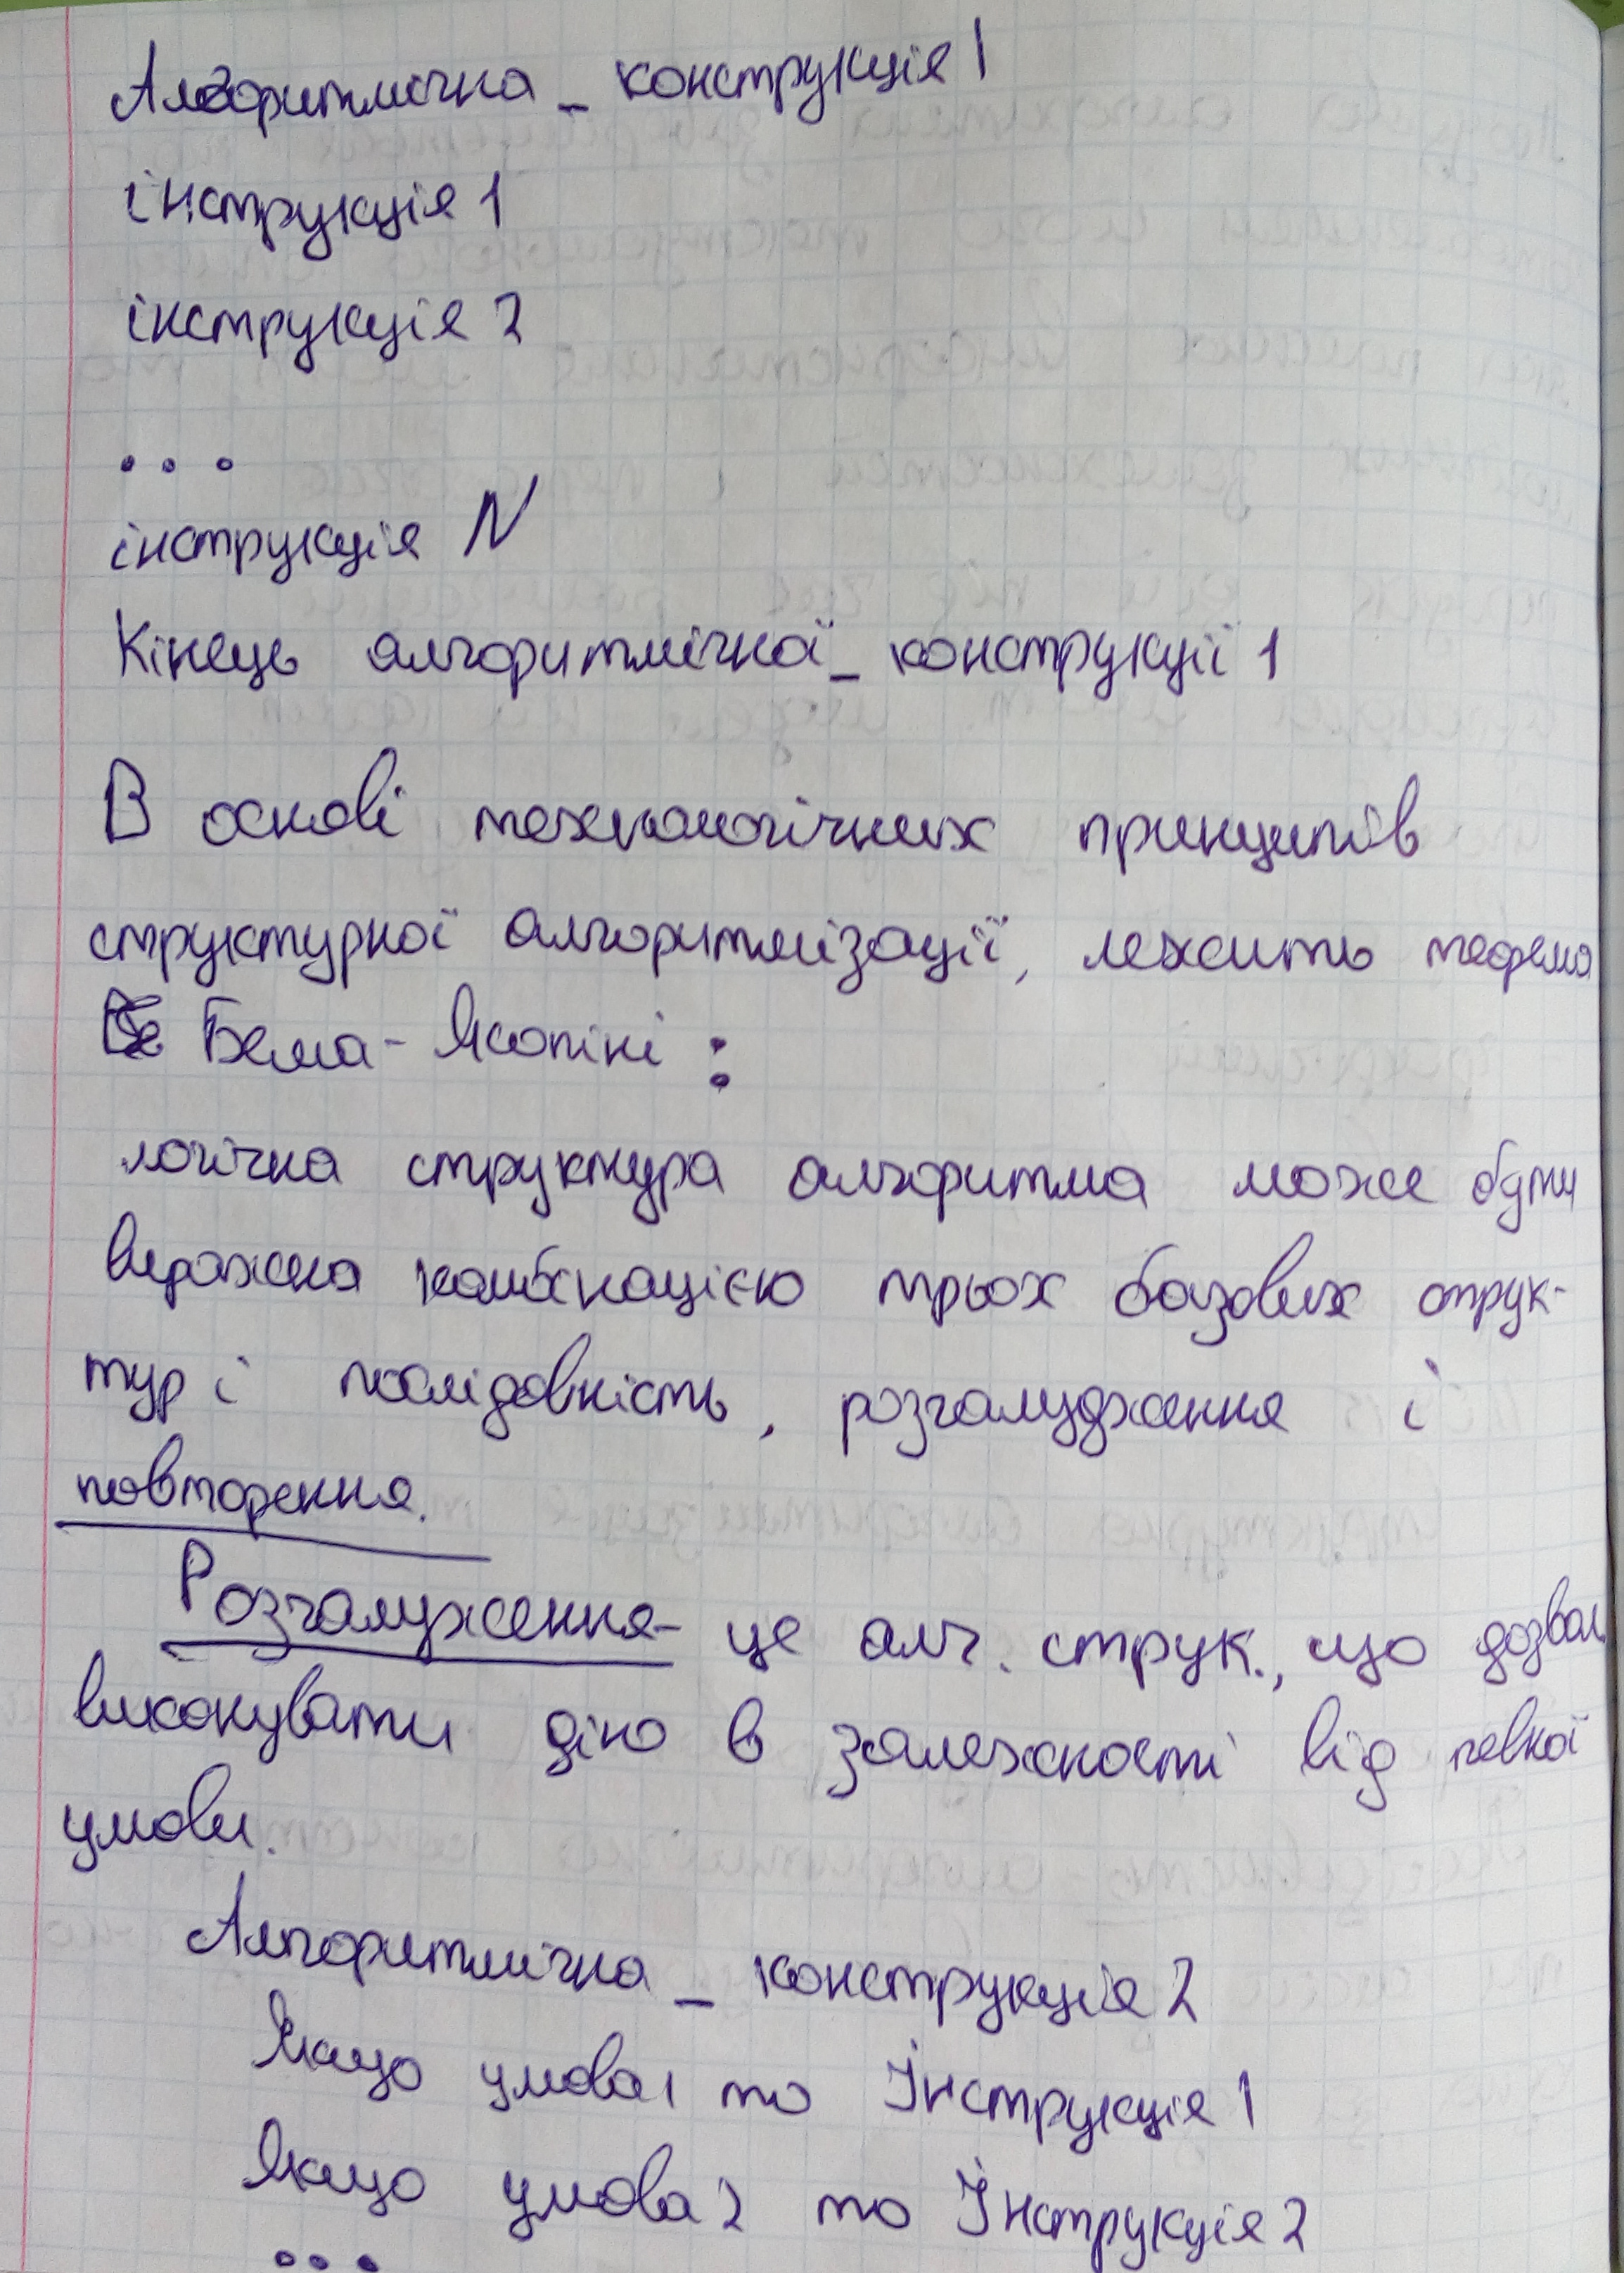 Алгоритмічна _ конструкція 1
інструкція 1
інструкція 2
...
інструкція N
Кінець алгоритмічної _ конструкції 1
В основі технологічних принципів
структурної алгоритмізації, лежить теорема
Бема - Якопіні :
логічна структура алгоритма може бути
виражена комбінацією трьох базових струк-
тур : послідовність, розгалудження і
повторення.
Розгалуження - це алг. струк., що дозвол.
виконувати дію в залежності від певної
умови.
Алгоритмічна _ конструкція 2
Якщо умова 1 то Інструкція 1
Якщо умова 2 то Інструкція 2
...